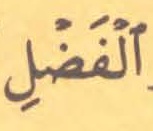 ٱلْفَضْلِ